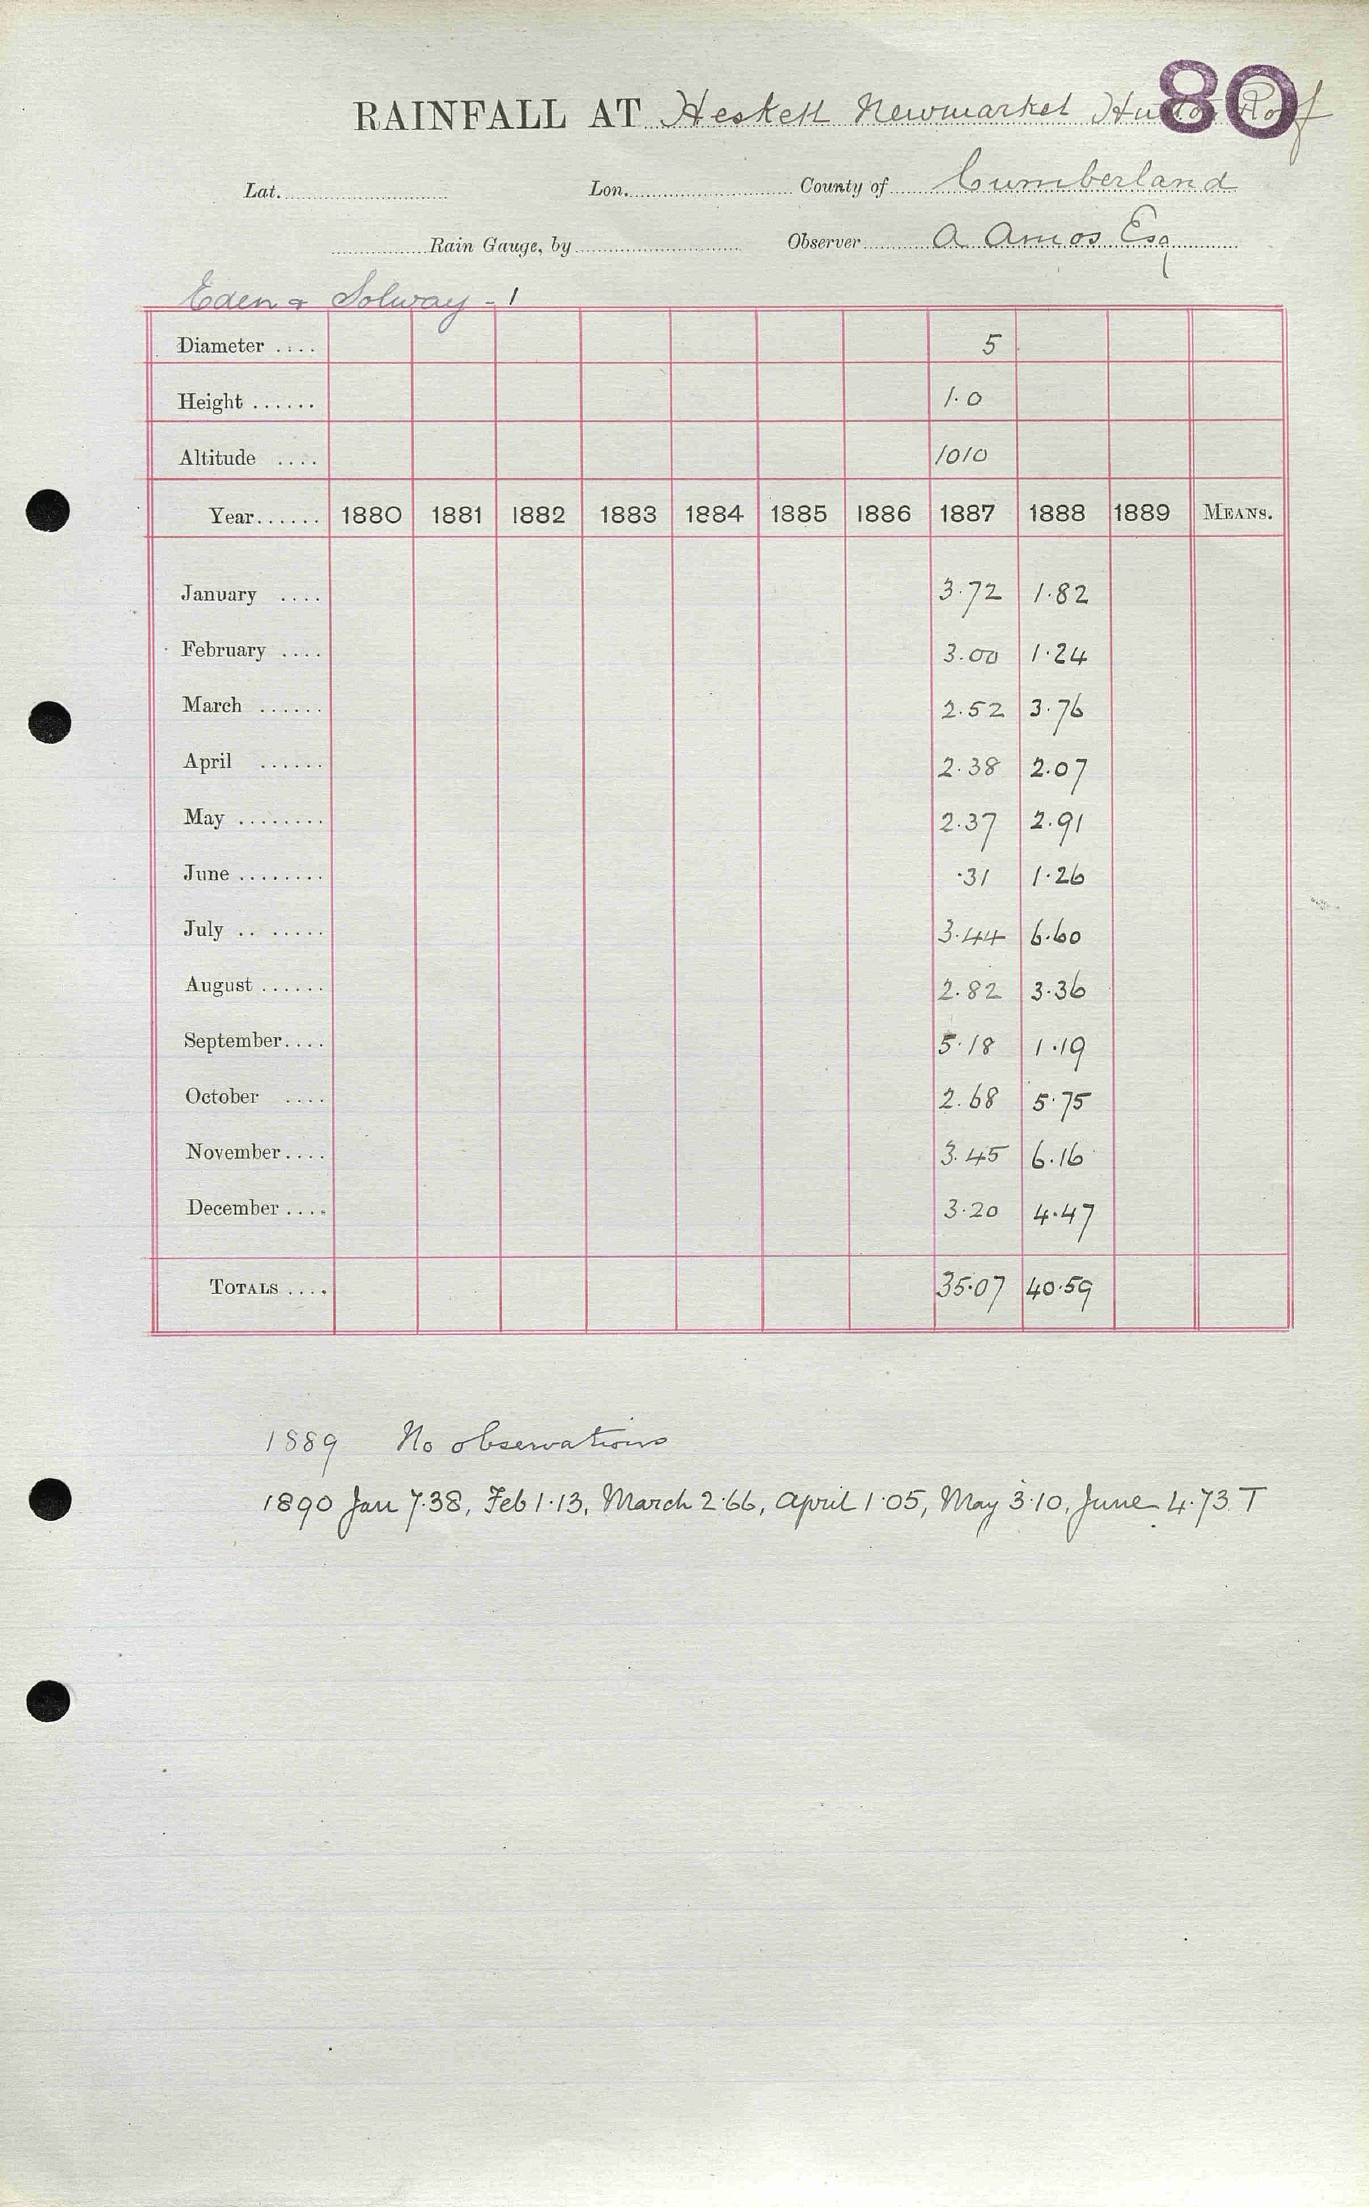 80
RAINFALL AT Heskett Newmarket Hutton Roof
Lat. Lon. County of Cumberland
Rain Gauge, by Observer A Amos Esq
Eden & Solway - 1
Diameter .... 5
Height ...... 1.0
Altitude .... 1010
Year...... 1880 1881 1882 1883 1884 1885 1886 1887 1888 1889 MEANS.
January .... 3.72 1.82
February .... 3.00 1.24
March ...... 2.52 3.76
April ...... 2.38 2.07
May ........ 2.37 2.91
June ........ .31 1.26
July ........ 3.44 6.60
August ...... 2.82 3.36
September.... 5.18 1.19
October .... 2.68 5.75
November.... 3.45 6.16
December .... 3.20 4.47
TOTALS .... 35.07 40.59
1889 No observations
1890 Jan 7.38, Feb 1.13, March 2.66, April 1.05, May 3.10, June 4.73 T